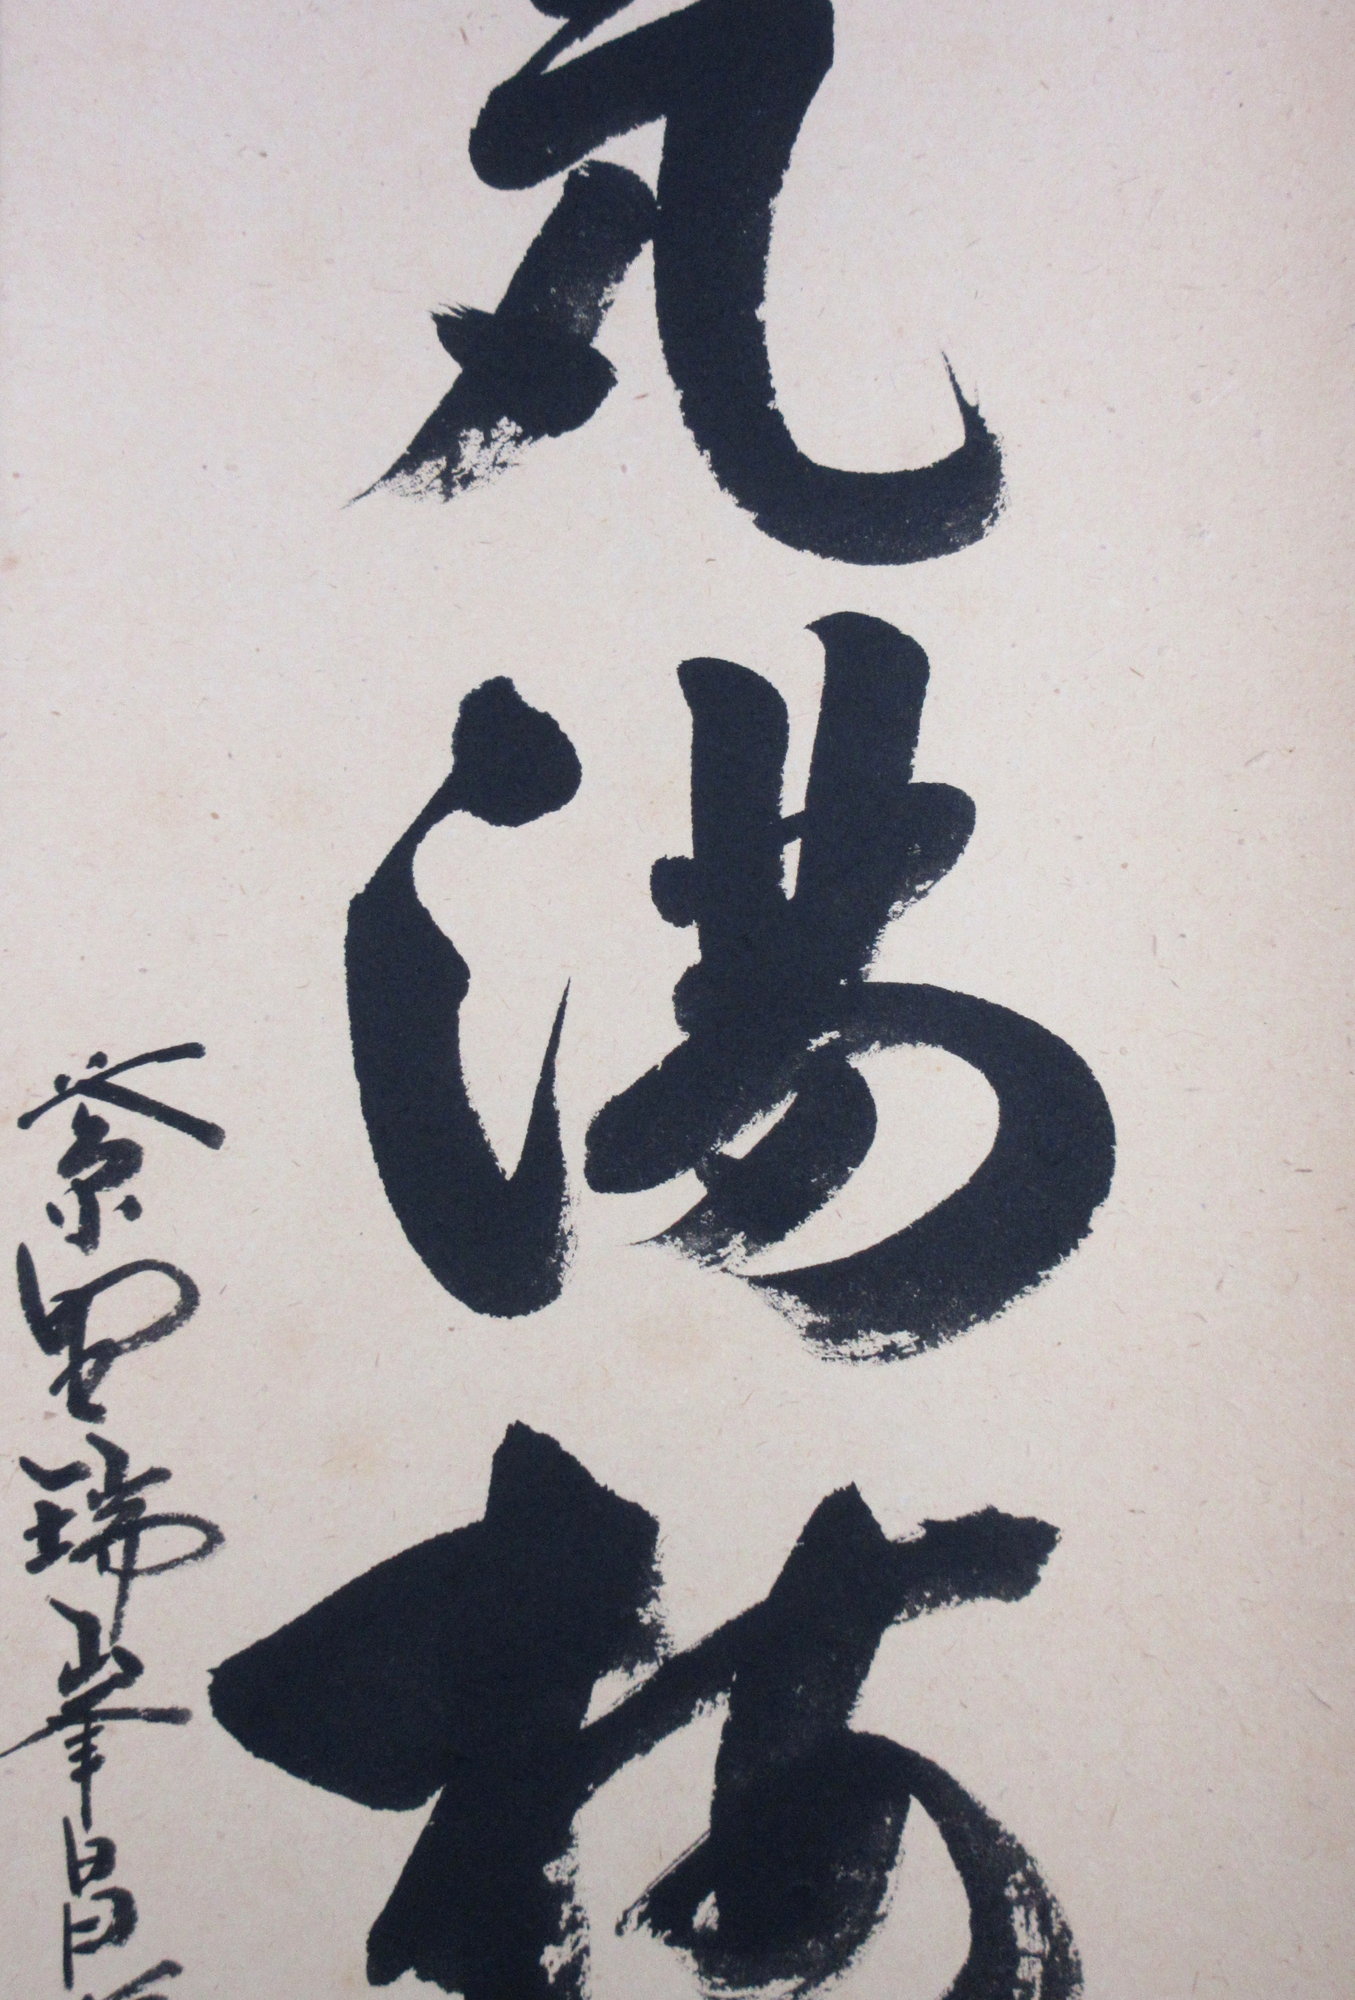 気満梅
紫野瑞峯昌